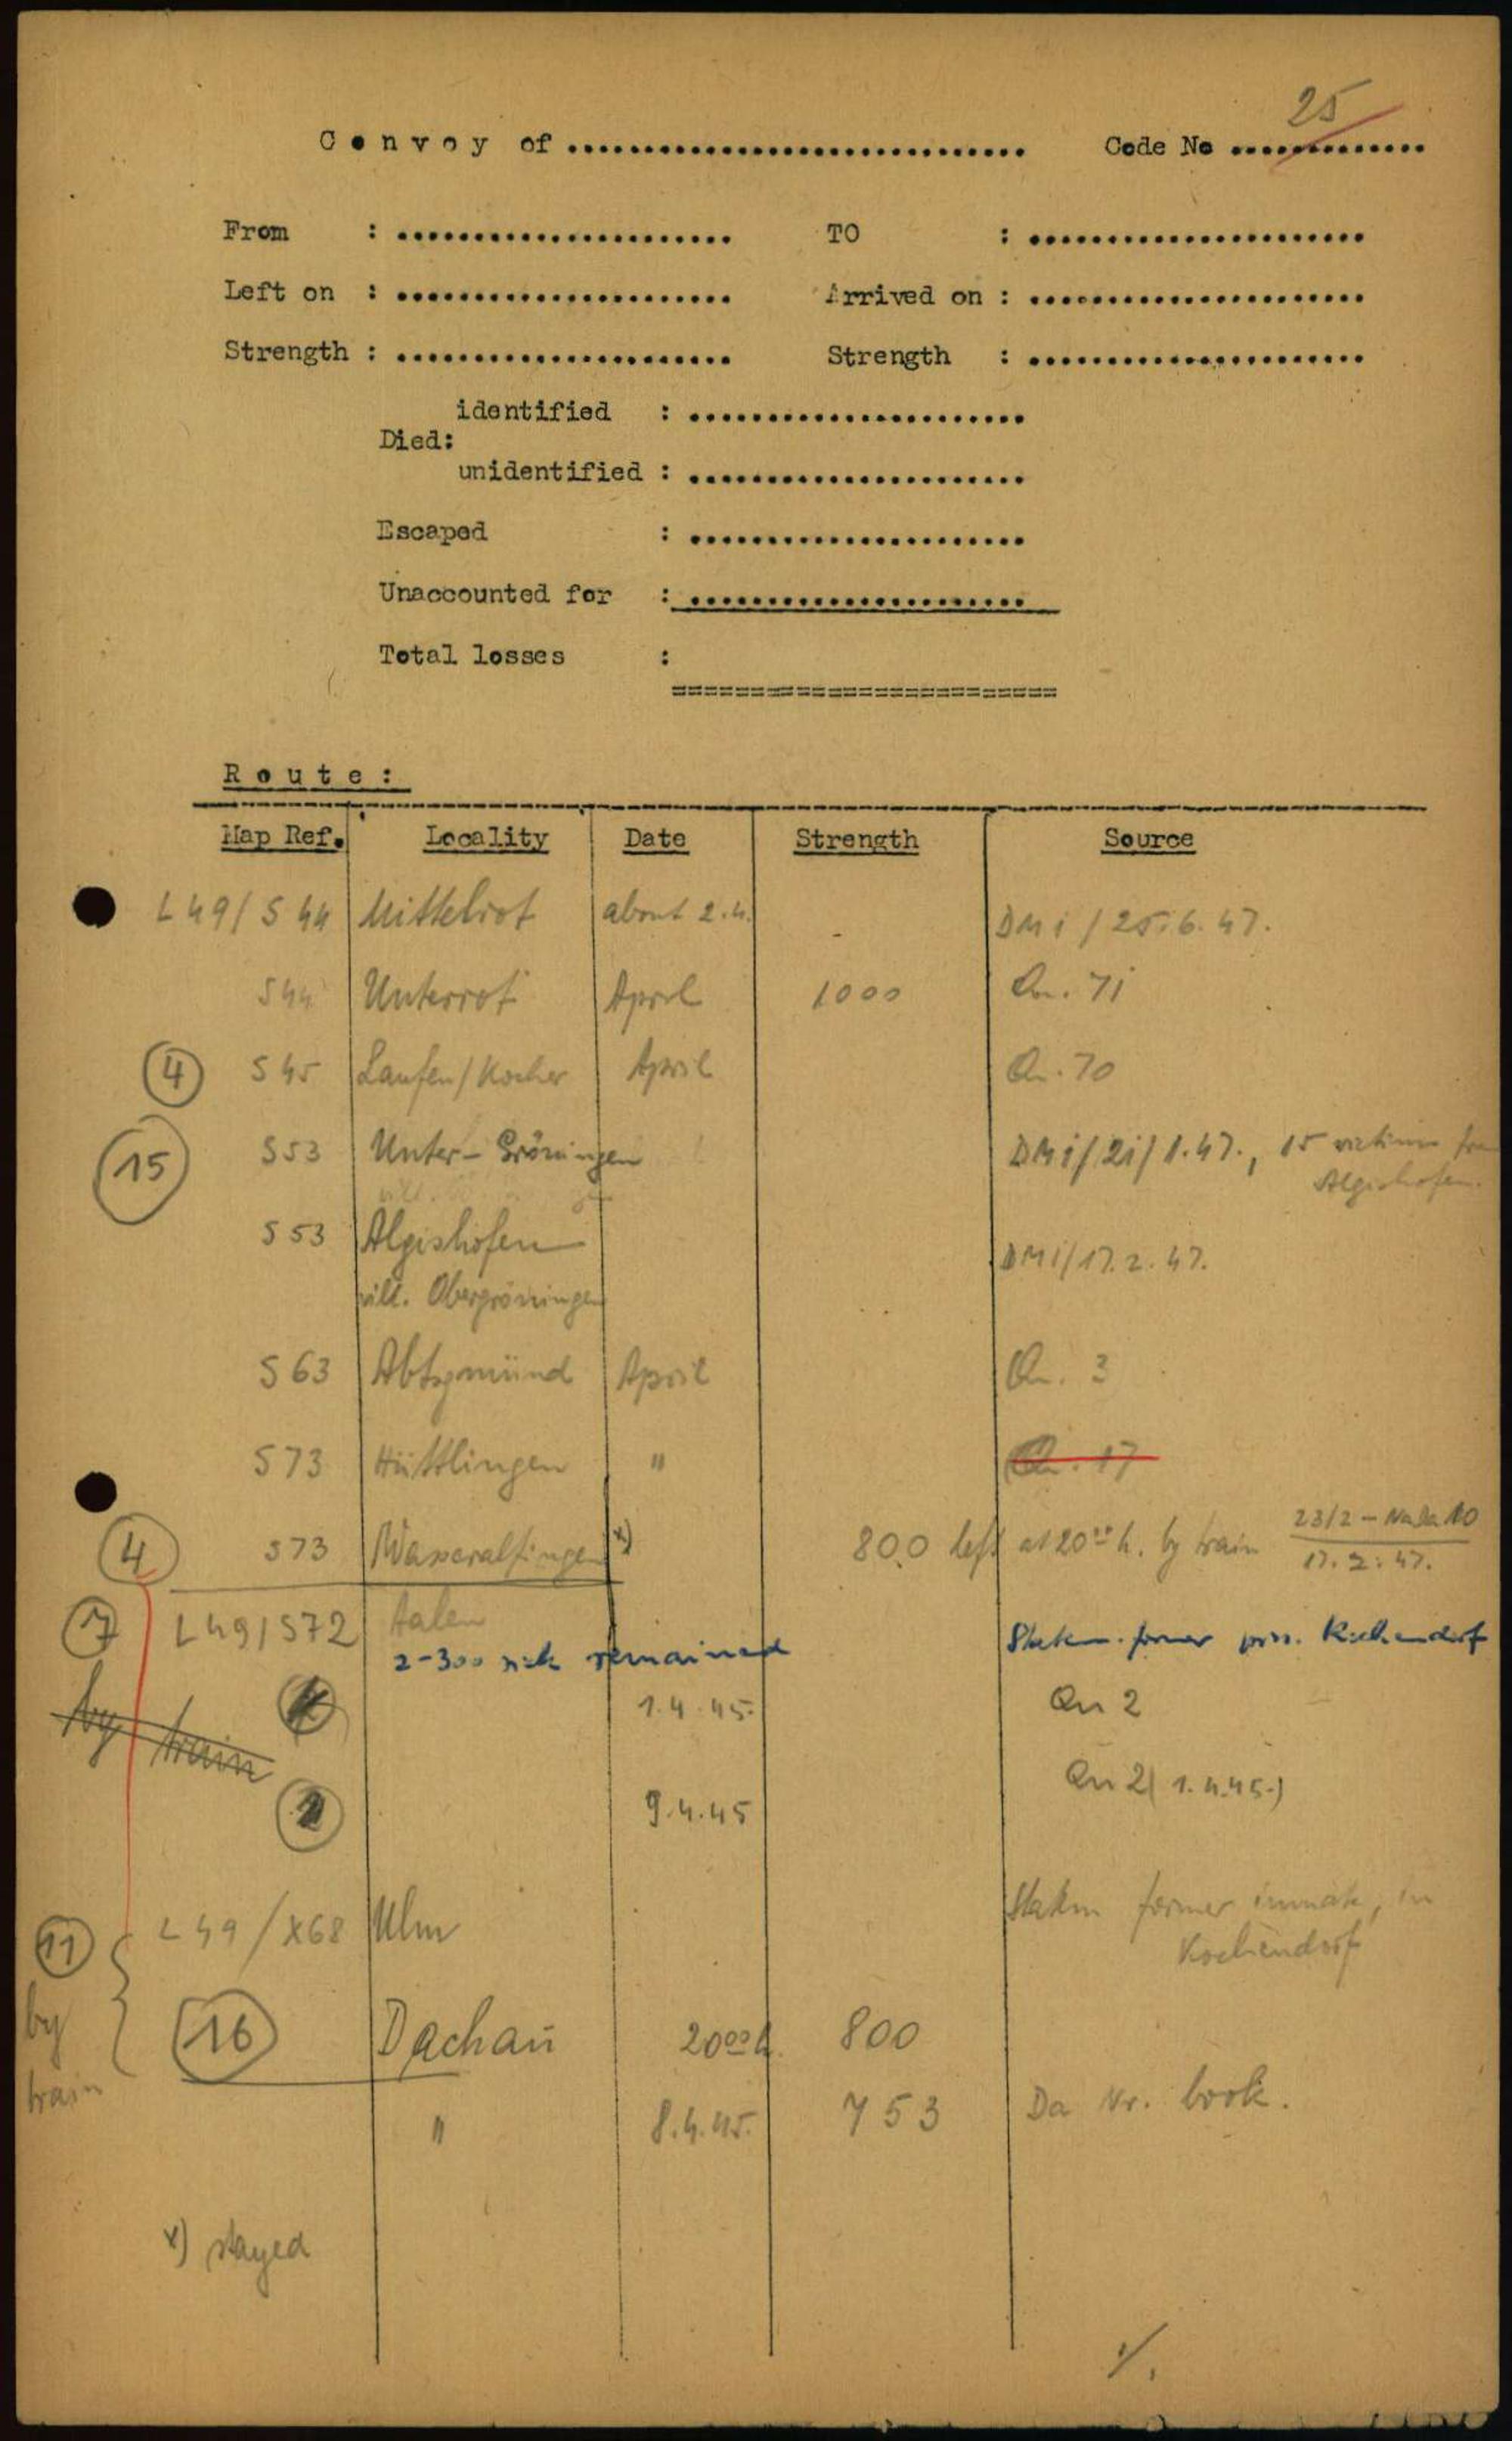 Convoy of .............................. Code No ............. 25
From : ...................... TO : ......................
Left on : ...................... Arrived on : ......................
Strength : ...................... Strength : ......................
identified : ......................
Died:
unidentified : ......................
Escaped : ......................
Unaccounted for : ......................
Total losses :
=========================
Route:
Map Ref. Locality Date Strength Source
L49/S44 Mittelrot about 2.4. - DMi/25.6.47.
S44 Unterrot April 1000 Qu. 71
4 S45 Laufen/Kocher April Qu. 70
15 S53 Unter-Gröningen DMi/21/1.47., 15 victims from
Algishofen.
S53 Algishofen DMi/17.2.47.
vill. Obergröningen
S63 Abtsgmünd April Qu. 3
S73 Hüttlingen " Qu. 17
4 S73 Wasseralfingen x) 800 left at 20⁰⁰ h. by train 23/2 - NaDa 10
17.2.47.
7 L49/S72 Aalen
2-300 sick remained Statem. former pris. Kochendorf
1.4.45. Qu 2
by train
2 9.4.45 Qu 2 (1.4.45.)
11 L49/X68 Ulm Statem former inmate, in
Kochendorf
by train
16 Dachau 20⁰⁰ h. 800
" 8.4.45. 753 Da Nr. book.
x) stayed
./.